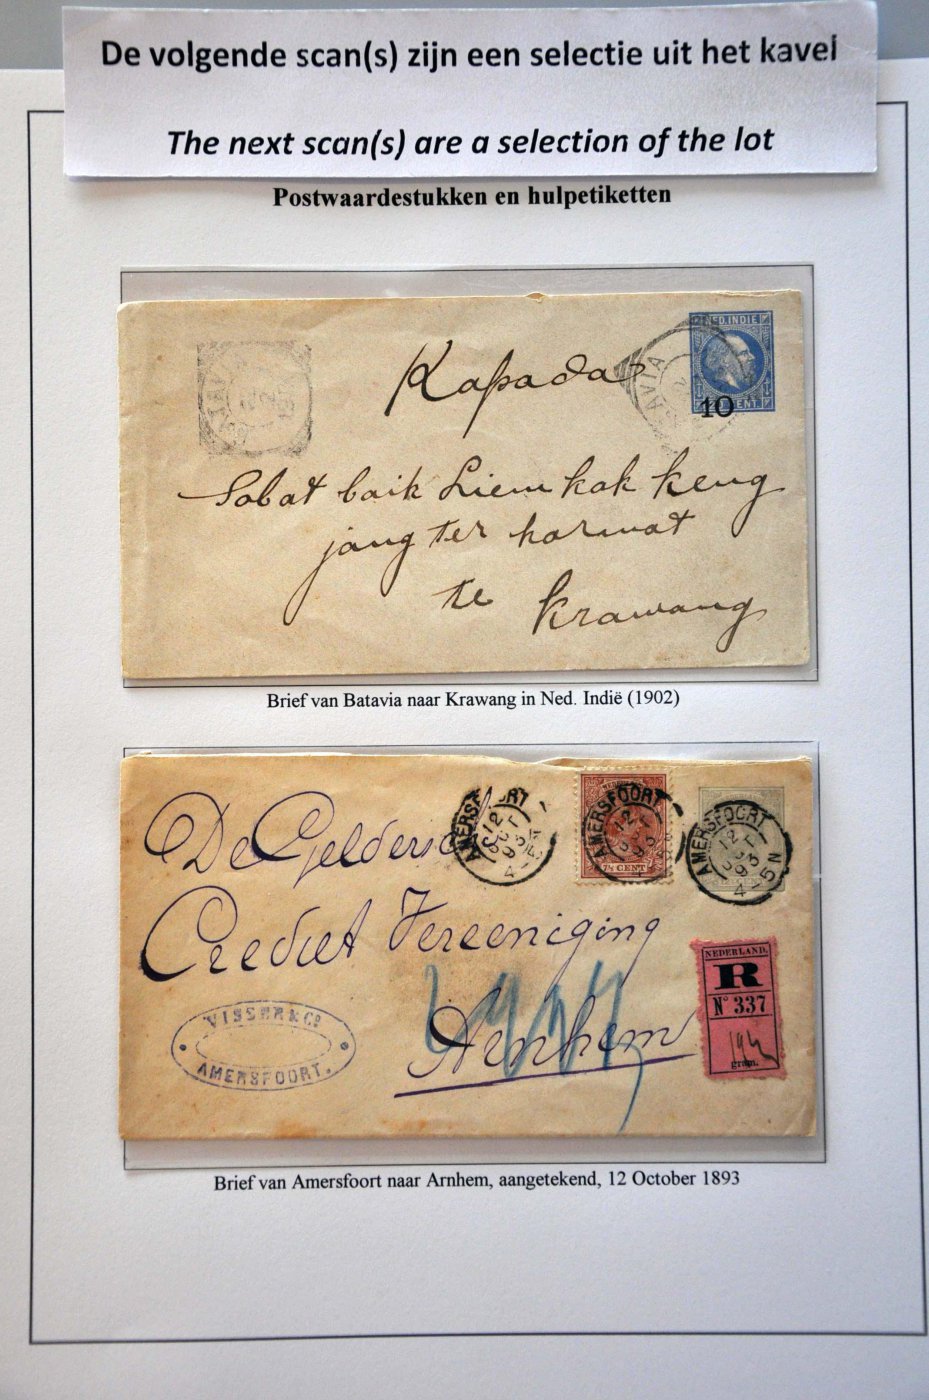 De volgende scan(s) zijn een selectie uit het kavel
The next scan(s) are a selection of the lot
Postwaardestukken en hulpetiketten
NED. INDIE
10
CENT.
AVIA
Kapada
Sobat baik Liem kok keng
jang ter hormat
te Krawang
Brief van Batavia naar Krawang in Ned. Indië (1902)
AMERSFOORT
12
OCT
93
4-5N
7½ CENT
AMERSFOORT
12
OCT
93
AMERSFOORT
12
OCT
93
4-5N
De Geldersc
Crediet Vereeniging
Arnhem
NEDERLAND.
R
N° 337
gram.
VISSER & Co
AMERSFOORT.
Brief van Amersfoort naar Arnhem, aangetekend, 12 October 1893